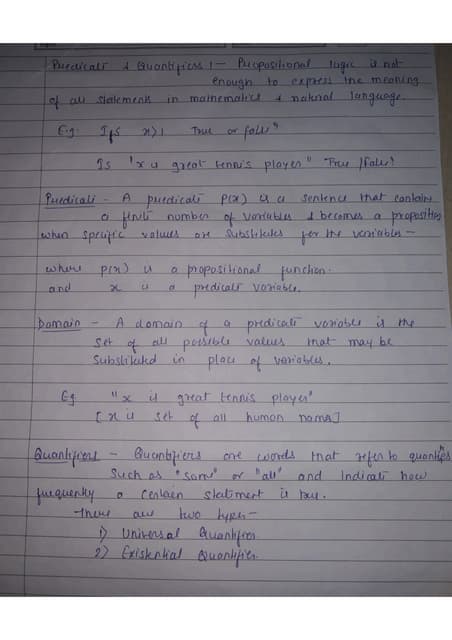 Predicate & Quantifiers :- Propositional logic is not
enough to express the meaning
of all statements in mathematics & natural language.
E.g: Is x>1 True or false?
Is "x is great tennis player" True/False?
Predicate - A predicate P(x) is a sentence that contains
a finite number of variables & becomes a proposition
when specific values are substitutes for the variables -
where P(x) is a propositional function.
and x is a predicate variable.
Domain - A domain of a predicate variable is the
set of all possible values that may be
substituted in place of variables.
Eg "x is great tennis player"
[x is set of all human names]
Quantifiers - Quantifiers are words that refer to quantities
such as "some" or "all" and indicate how
frequently a certain statement is true.
There are two types -
1) Universal Quantifier
2) Existential Quantifier.